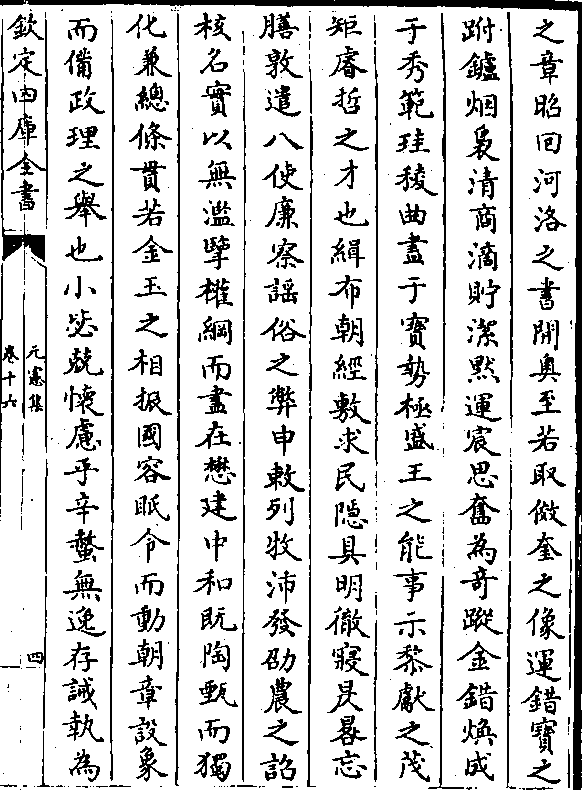 之章昭回河洛之書開奥至若取倣奎之像運錯寳之
跗鑪烟裊清商滴貯潔黙運宸思奮為奇蹤金錯煥成
于秀範珪稜曲盡于寳勢極盛王之能事示黎獻之茂
矩睿哲之才也緝布朝經敷求民隠具明徹寢昃晷忘
膳敦遣八使廉察謡俗之弊申敕列牧沛發劭農之詔
核名實以無濫擥權綱而盡在懋建中和既陶甄而獨
化兼總條貫若金玉之相振國容眂令而動朝章設象
而備政理之舉也小毖兢懷慮乎辛螫無逸存誡執為
欽定四庫全書
元憲集
卷十六
四